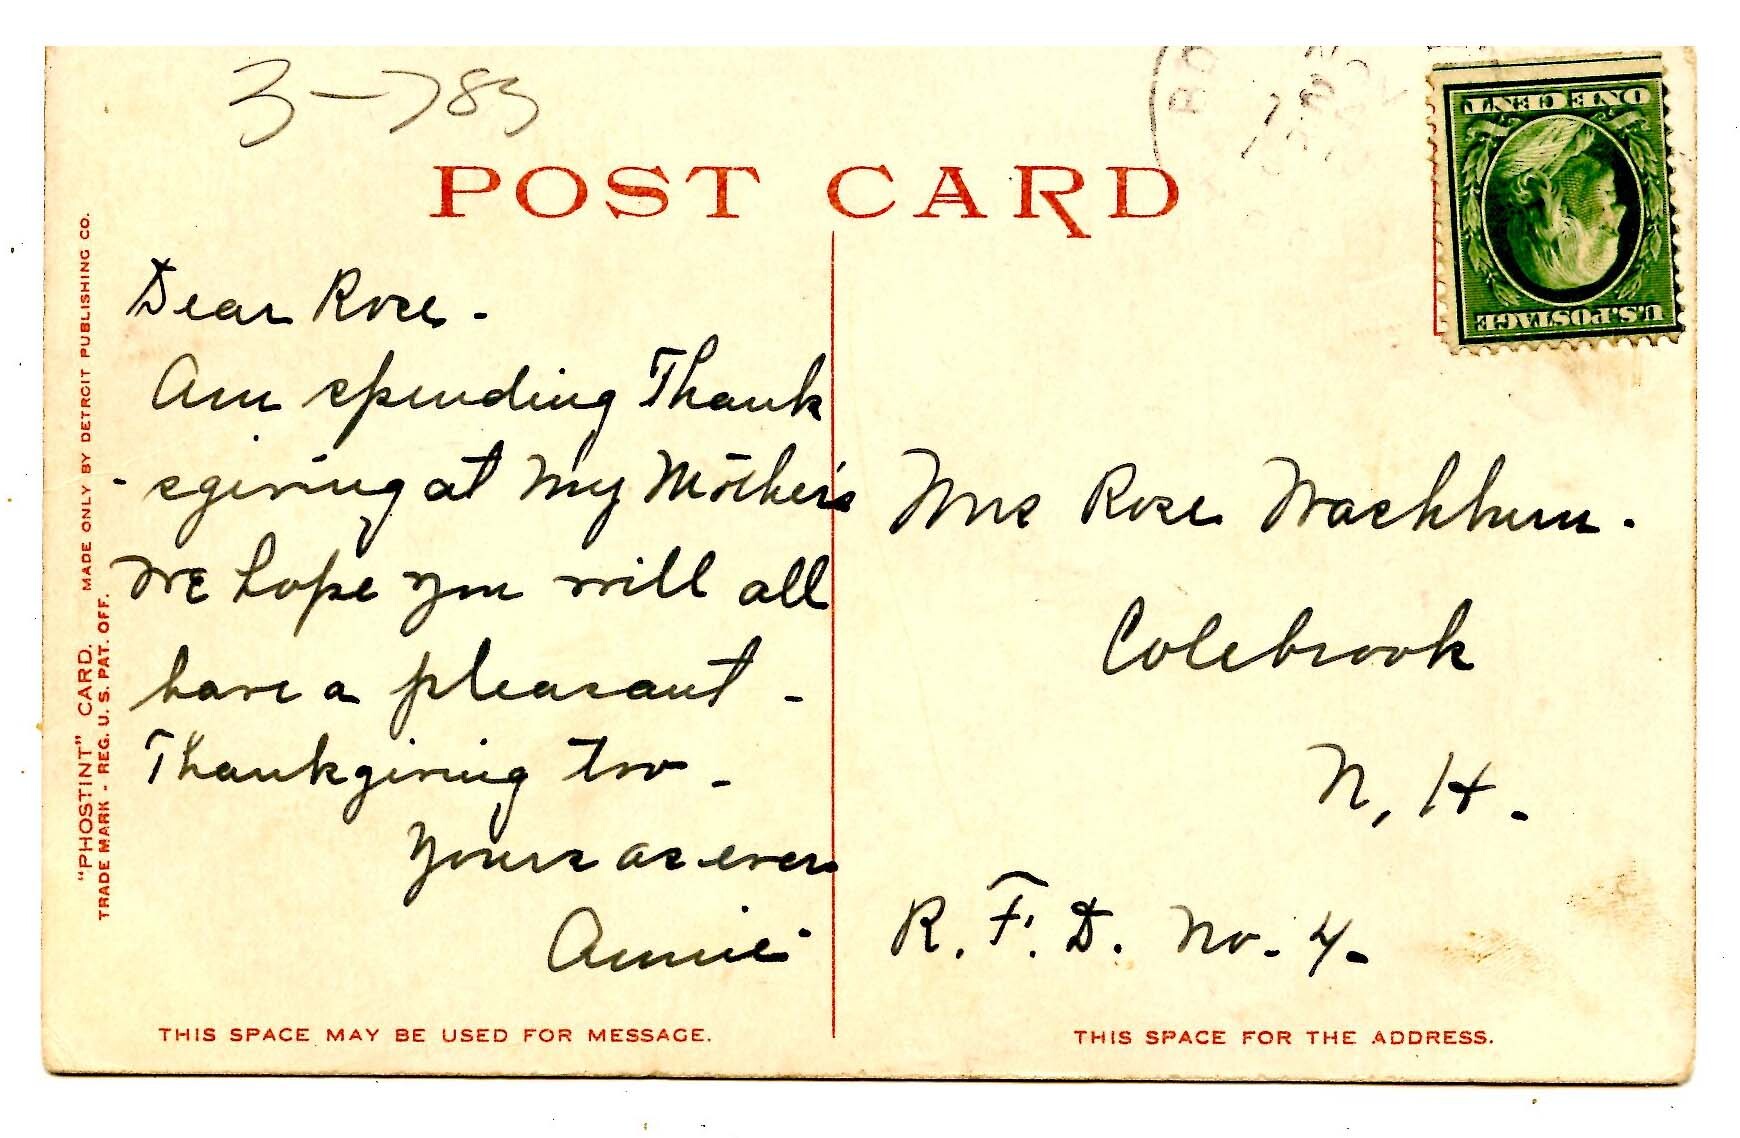 3-783
POST CARD
ONE CENT
U.S. POSTAGE
"PHOSTINT" CARD. MADE ONLY BY DETROIT PUBLISHING CO.
TRADE MARK - REG. U. S. PAT. OFF.
Dear Rose -
Am spending Thank
- sgiving at My Mother's
We hope you will all
have a pleasant -
Thanksgiving too -
Yours as ever
Annie
Mrs Rose Washburn.
Colebrook
N, H.
R. F. D. No. 4.
THIS SPACE MAY BE USED FOR MESSAGE.
THIS SPACE FOR THE ADDRESS.